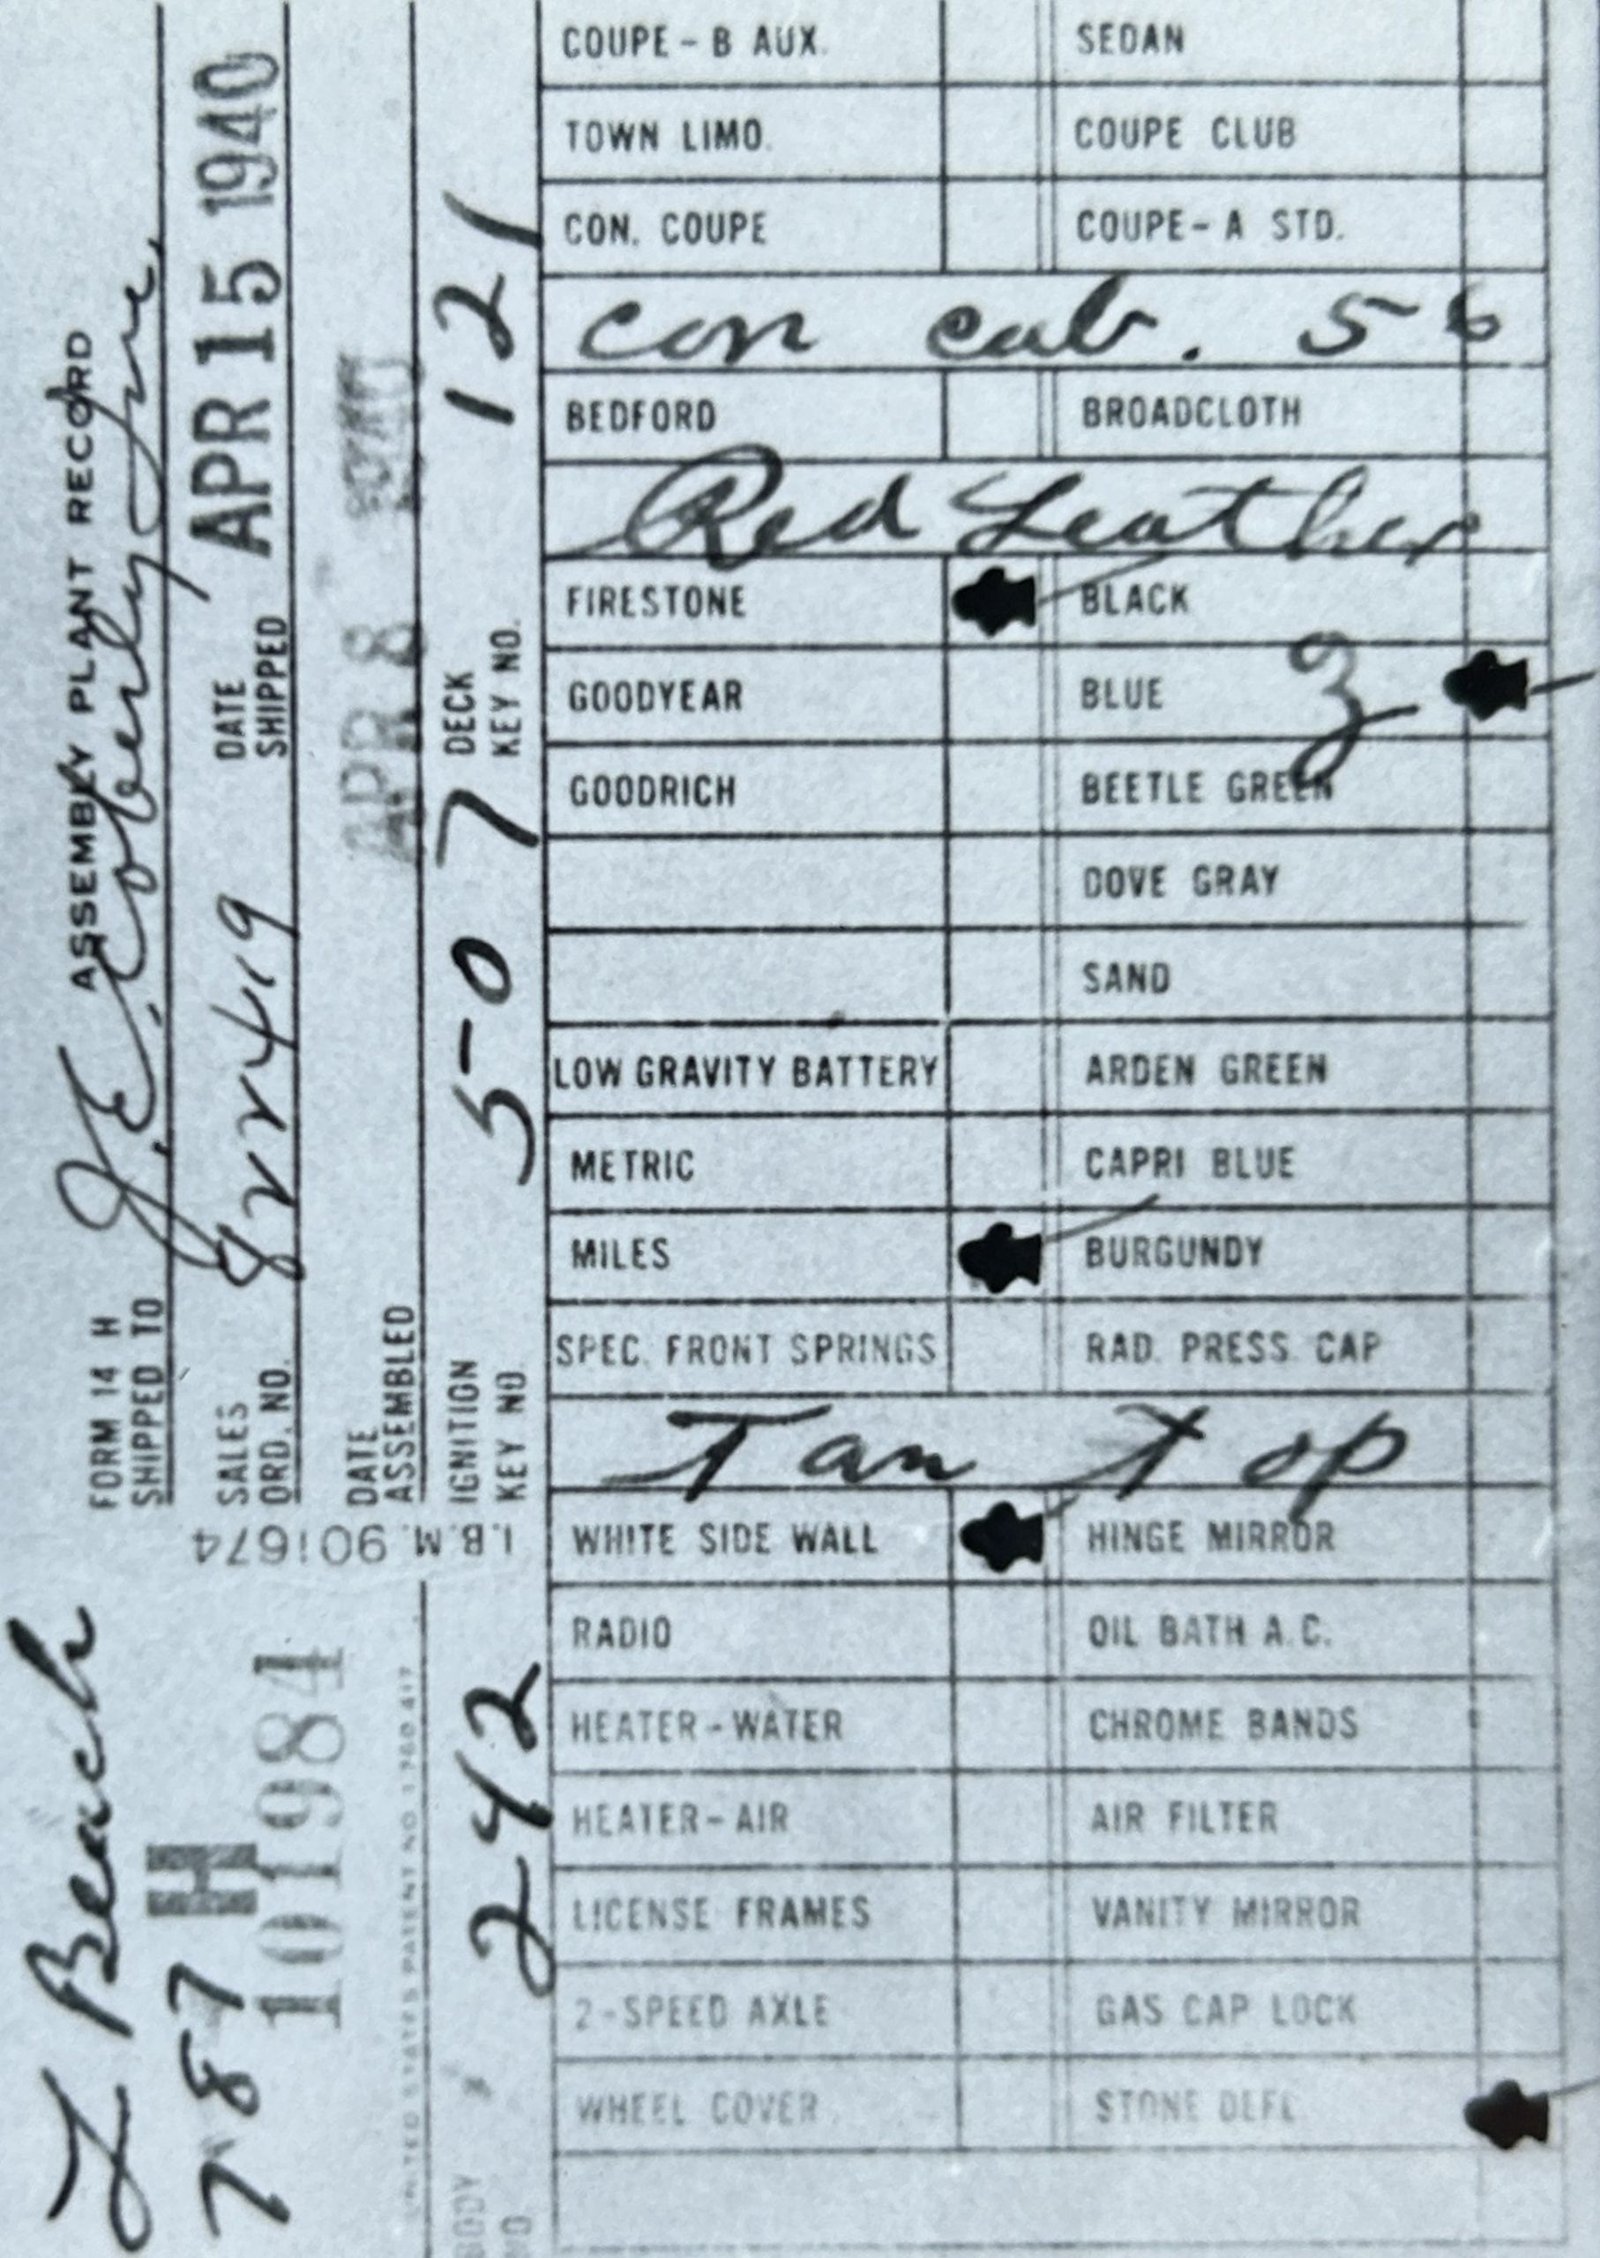 FORM 14 H ASSEMBLY PLANT RECORD
SHIPPED TO J. E. Coberly Inc.
SALES ORD. NO. 82419 DATE SHIPPED APR 15 1940
DATE ASSEMBLED APR 8 1940
IGNITION KEY NO. 507 DECK KEY NO. 121
I.B.M. 901674
L Beach
787 H
101984
UNITED STATES PATENT NO. 1 780 417
BODY NO. 242
COUPE - B AUX. SEDAN
TOWN LIMO. COUPE CLUB
CON. COUPE COUPE - A STD.
Con cab. 56
BEDFORD BROADCLOTH
Red Leather
FIRESTONE BLACK
GOODYEAR BLUE
GOODRICH BEETLE GREEN
DOVE GRAY
SAND
LOW GRAVITY BATTERY ARDEN GREEN
METRIC CAPRI BLUE
MILES BURGUNDY
SPEC. FRONT SPRINGS RAD. PRESS. CAP
Tan top
WHITE SIDE WALL HINGE MIRROR
RADIO OIL BATH A.C.
HEATER - WATER CHROME BANDS
HEATER - AIR AIR FILTER
LICENSE FRAMES VANITY MIRROR
2 - SPEED AXLE GAS CAP LOCK
WHEEL COVER STONE DEFL.